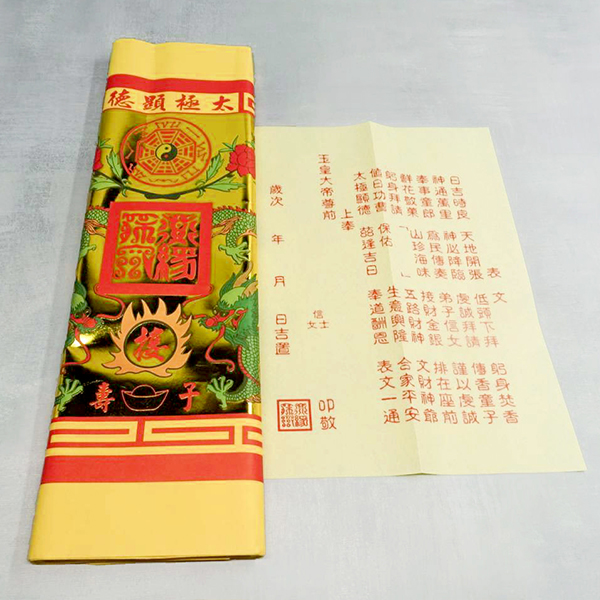 太極顯德
接
子壽
表文
日吉時良 天地開張 低頭下拜 躬身焚香
神通萬里 神必降臨 虔誠拜請 傳香童子
奉事童郎 為民傳奏 弟子信女 謹以虔誠
鮮花敬菓 山珍海味 接財金銀 排在座前
躬身拜請 「 」 五路財神 文財神爺
值日功曹 保佑 生意興隆 合家平安
太極顯德 吉日 奉道酬恩 表文一通
上奉
玉皇大帝尊前
信士女 叩敬
歲次 年 月 日吉置